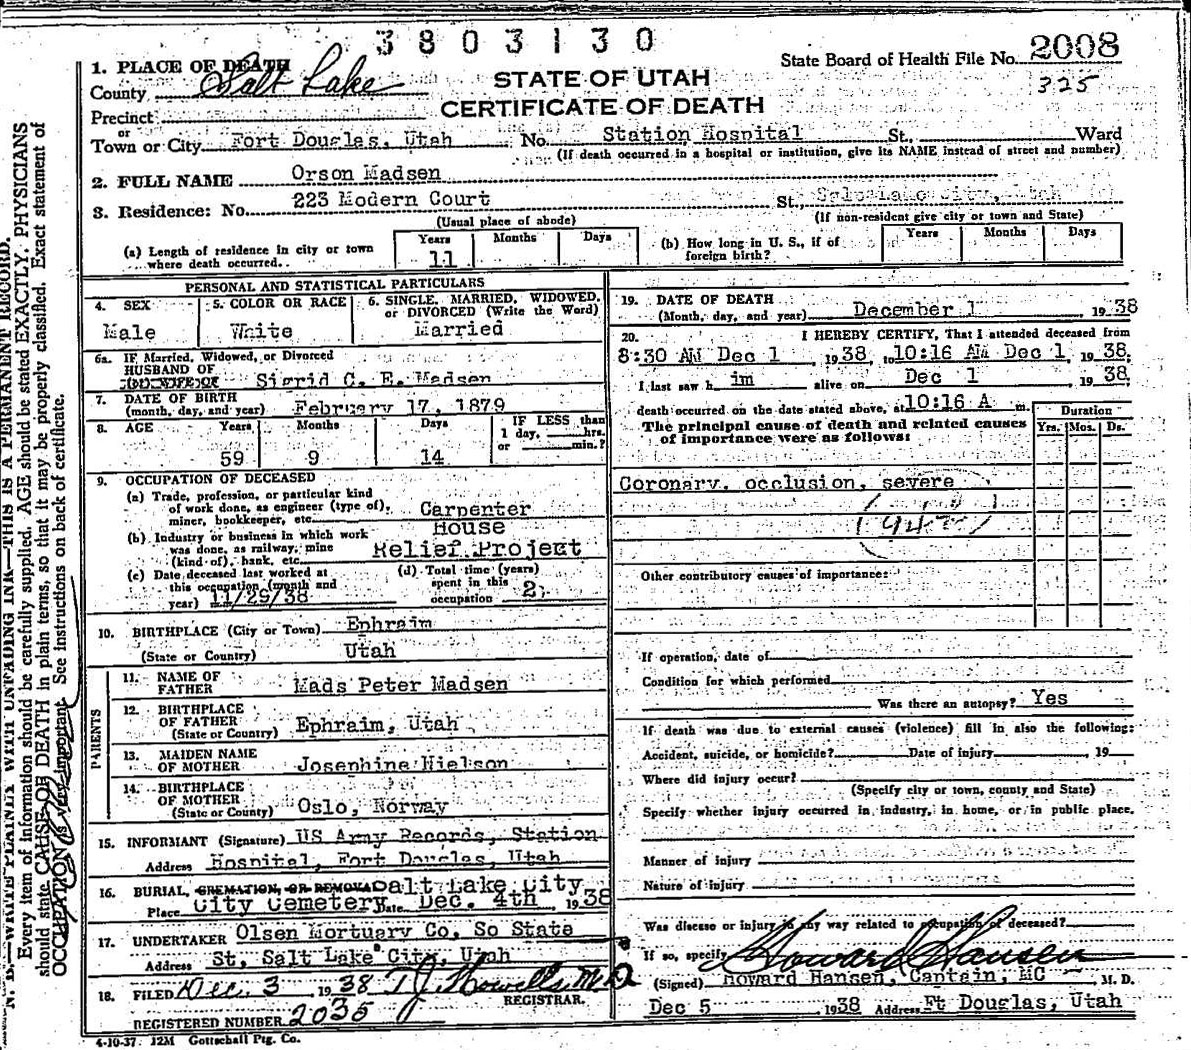 3803130
State Board of Health File No. 2008
325
1. PLACE OF DEATH
County Salt Lake
STATE OF UTAH
CERTIFICATE OF DEATH
Precinct
or
Town or City Fort Douglas, Utah No. Station Hospital St. Ward
(If death occurred in a hospital or institution, give its NAME instead of street and number)
2. FULL NAME Orson Madsen
3. Residence: No. 223 Modern Court St., Salt Lake City, Utah
(Usual place of abode) (If non-resident give city or town and State)
(a) Length of residence in city or town where death occurred. Years 11 Months Days
(b) How long in U. S., if of foreign birth? Years Months Days
PERSONAL AND STATISTICAL PARTICULARS
4. SEX 5. COLOR OR RACE 6. SINGLE, MARRIED, WIDOWED, or DIVORCED (Write the Word)
Male White Married
6a. IF Married, Widowed, or Divorced
HUSBAND OF
(or) WIFE OF Sigrid C. E. Madsen
7. DATE OF BIRTH
(month, day, and year) February 17, 1879
8. AGE Years Months Days IF LESS than
1 day, hrs.
or min.?
59 9 14
9. OCCUPATION OF DECEASED
(a) Trade, profession, or particular kind
of work done, as engineer (type of),
miner, bookkeeper, etc. Carpenter
(b) Industry or business in which work House
was done, as railway, mine Relief Project
(kind of), bank, etc.
(c) Date deceased last worked at
this occupation (month and
year) 11/29/38
(d) Total time (years)
spent in this
occupation 2
10. BIRTHPLACE (City or Town) Ephraim
(State or Country) Utah
PARENTS
11. NAME OF
FATHER Mads Peter Madsen
12. BIRTHPLACE
OF FATHER
(State or Country) Ephraim, Utah
13. MAIDEN NAME
OF MOTHER Josephine Nielson
14. BIRTHPLACE
OF MOTHER
(State or County) Oslo, Norway
15. INFORMANT (Signature) US Army Records, Station
Address Hospital, Fort Douglas, Utah
16. BURIAL, CREMATION, OR REMOVAL Salt Lake City
Place City Cemetery Date Dec. 4th, 1938
17. UNDERTAKER Olsen Mortuary Co, So State
Address St, Salt Lake City, Utah
18. FILED Dec. 3 1938 T J Howells M.D.
REGISTRAR.
REGISTERED NUMBER 2035
4-10-37 12M Gottschall Ptg. Co.
19. DATE OF DEATH
(Month, day, and year) December 1 1938
20. I HEREBY CERTIFY, That I attended deceased from
8:30 AM Dec 1 1938, to 10:16 AM Dec 1, 1938.
I last saw h im alive on Dec 1 1938.
death occurred on the date stated above, at 10:16 A m.
The principal cause of death and related causes
of importance were as follows:
Duration
Yrs. Mos. Ds.
Coronary occlusion, severe
Other contributory causes of importance:
If operation, date of
Condition for which performed
Was there an autopsy? Yes
If death was due to external causes (violence) fill in also the following:
Accident, suicide, or homicide? Date of injury 19
Where did injury occur?
(Specify city or town, county and State)
Specify whether injury occurred in industry, in home, or in public place.
Manner of injury
Nature of injury
Was disease or injury in any way related to occupation of deceased?
If so, specify Howard Hansen
(Signed) Howard Hansen, Captain, MC M. D.
Dec 5 1938 Address Ft Douglas, Utah
N. B.—WRITE PLAINLY WITH UNFADING INK—THIS IS A PERMANENT RECORD.
Every item of information should be carefully supplied. AGE should be stated EXACTLY. PHYSICIANS
should state CAUSE OF DEATH in plain terms, so that it may be properly classified. Exact statement of
OCCUPATION is very important. See instructions on back of certificate.